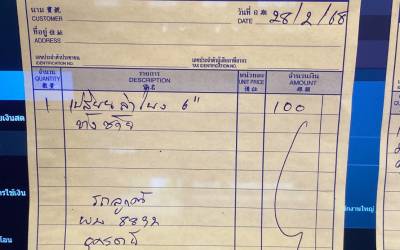 นาม 寶號
CUSTOMER
วันที่ 日期
DATE 28/2/68
ที่อยู่ 住址
ADDRESS
เลขประจำตัวประชาชน
IDENTIFICATION NO.
เลขประจำตัวผู้เสียภาษีอากร
TAX IDENTIFICATION NO.
จำนวน รายการ หน่วยละ จำนวนเงิน
QUANTITY DESCRIPTION UNIT PRICE AMOUNT
數量 貨名 價位 銀碼
1 เปลี่ยนลำโพง 6" 100
ข้างซ้าย
รถลูกค้า
ผน 8832
อุดรธานี